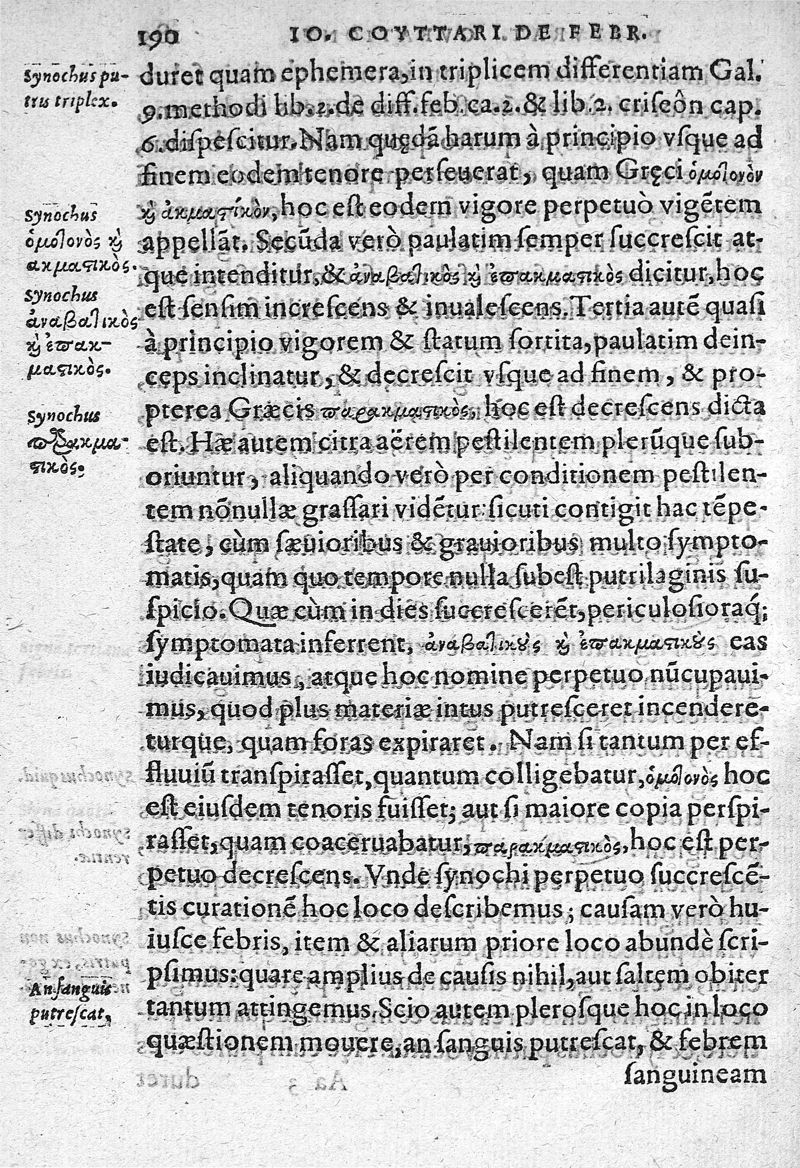 190 IO. COYTTARI DE FEBR.
Synochus pu-
tris triplex.
duret quam ephemera, in triplicem differentiam Gal.
9. methodi lib. 1. de diff. feb. ca. 2. & lib. 2. criseôn cap.
6. dispescitur. Nam quędã harum à principio vsque ad
finem eodem tenore perseuerat, quam Gręci ὁμότονὸν
Synochus
ὁμότονὸς ϗ
ακμαστικὸς.
ϗ ἀκμαστικὸν, hoc est eodem vigore perpetuò vigẽtem
appellãt. Secũda verò paulatim semper succrescit at-
que intenditur, & ἀναβατικὸς ϗ ἐπακμαστικὸς dicitur, hoc
Synochus
ἀναβατικὸς
ϗ ἐπακ-
μαστικὸς.
est sensim increscens & inualescens. Tertia autẽ quasi
à principio vigorem & statum sortita, paulatim dein-
ceps inclinatur, & decrescit vsque ad finem, & pro-
Synochus
παρακμα-
στικὸς.
pterea Græcis παρακμαστικὸς, hoc est decrescens dicta
est. Hæ autem citra aërem pestilentem plerũque sub-
oriuntur, aliquando verò per conditionem pestilen-
tem nõnullæ grassari vidẽtur: sicuti contigit hac tẽpe-
state, cùm sæuioribus & grauioribus multo sympto-
matis, quam quo tempore nulla subest putrilaginis su-
spicio. Quæ cùm in dies succrescerẽt, periculosioraq́;
symptomata inferrent, ἀναβατικȣς ϗ ἐπακμαστικȣς eas
iudicauimus, atque hoc nomine perpetuo nũcupaui-
mus, quod plus materiæ intus putresceret incendere-
turque, quam foras expiraret. Nam si tantum per ef-
fluuiũ transpirasset, quantum colligebatur, ὁμότονὸς hoc
est eiusdem tenoris fuisset; aut si maiore copia perspi-
rasset, quam coaceruabatur, παρακμαστικὸς, hoc est per-
petuo decrescens. Vnde synochi perpetuo succrescẽ-
tis curationẽ hoc loco describemus; causam verò hu-
iusce febris, item & aliarum priore loco abundè scri-
An sanguis
putrescat,
psimus: quare amplius de causis nihil, aut saltem obiter
tantum attingemus. Scio autem plerosque hoc in loco
quæstionem mouere, an sanguis putrescat, & febrem
sanguineam